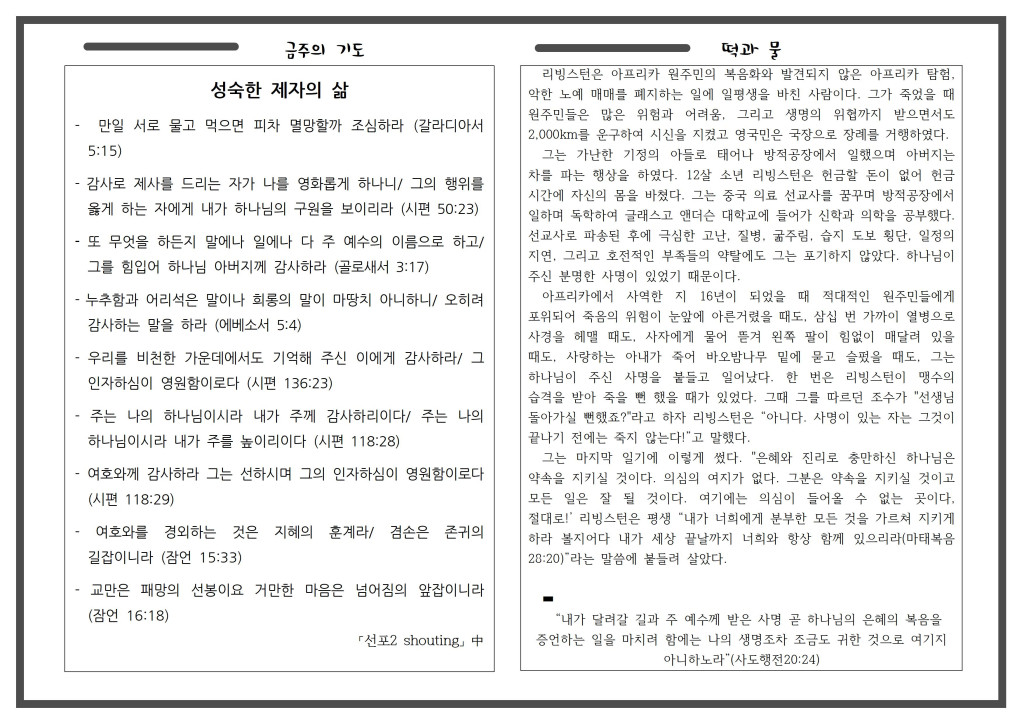 금주의 기도
성숙한 제자의 삶
- 만일 서로 물고 먹으면 피차 멸망할까 조심하라 (갈라디아서
5:15)
- 감사로 제사를 드리는 자가 나를 영화롭게 하나니/ 그의 행위를
옳게 하는 자에게 내가 하나님의 구원을 보이리라 (시편 50:23)
- 또 무엇을 하든지 말에나 일에나 다 주 예수의 이름으로 하고/
그를 힘입어 하나님 아버지께 감사하라 (골로새서 3:17)
- 누추함과 어리석은 말이나 희롱의 말이 마땅치 아니하니/ 오히려
감사하는 말을 하라 (에베소서 5:4)
- 우리를 비천한 가운데에서도 기억해 주신 이에게 감사하라/ 그
인자하심이 영원함이로다 (시편 136:23)
- 주는 나의 하나님이시라 내가 주께 감사하리이다/ 주는 나의
하나님이시라 내가 주를 높이리이다 (시편 118:28)
- 여호와께 감사하라 그는 선하시며 그의 인자하심이 영원함이로다
(시편 118:29)
- 여호와를 경외하는 것은 지혜의 훈계라/ 겸손은 존귀의
길잡이니라 (잠언 15:33)
- 교만은 패망의 선봉이요 거만한 마음은 넘어짐의 앞잡이니라
(잠언 16:18)
「선포2 shouting」中
떡과 물
리빙스턴은 아프리카 원주민의 복음화와 발견되지 않은 아프리카 탐험,
악한 노예 매매를 폐지하는 일에 일평생을 바친 사람이다. 그가 죽었을 때
원주민들은 많은 위험과 어려움, 그리고 생명의 위협까지 받으면서도
2,000km를 운구하여 시신을 지켰고 영국민은 국장으로 장례를 거행하였다.
그는 가난한 기정의 아들로 태어나 방적공장에서 일했으며 아버지는
차를 파는 행상을 하였다. 12살 소년 리빙스턴은 헌금할 돈이 없어 헌금
시간에 자신의 몸을 바쳤다. 그는 중국 의료 선교사를 꿈꾸며 방적공장에서
일하며 독학하여 글래스고 앤더슨 대학교에 들어가 신학과 의학을 공부했다.
선교사로 파송된 후에 극심한 고난, 질병, 굶주림, 습지 도보 횡단, 일정의
지연, 그리고 호전적인 부족들의 약탈에도 그는 포기하지 않았다. 하나님이
주신 분명한 사명이 있었기 때문이다.
아프리카에서 사역한 지 16년이 되었을 때 적대적인 원주민들에게
포위되어 죽음의 위험이 눈앞에 아른거렸을 때도, 삼십 번 가까이 열병으로
사경을 헤맬 때도, 사자에게 물어 뜯겨 왼쪽 팔이 힘없이 매달려 있을
때도, 사랑하는 아내가 죽어 바오밤나무 밑에 묻고 슬펐을 때도, 그는
하나님이 주신 사명을 붙들고 일어났다. 한 번은 리빙스턴이 맹수의
습격을 받아 죽을 뻔 했을 때가 있었다. 그때 그를 따르던 조수가 "선생님
돌아가실 뻔했죠?"라고 하자 리빙스턴은 “아니다. 사명이 있는 자는 그것이
끝나기 전에는 죽지 않는다!”고 말했다.
그는 마지막 일기에 이렇게 썼다. "은혜와 진리로 충만하신 하나님은
약속을 지키실 것이다. 의심의 여지가 없다. 그분은 약속을 지키실 것이고
모든 일은 잘 될 것이다. 여기에는 의심이 들어올 수 없는 곳이다,
절대로!’ 리빙스턴은 평생 “내가 너희에게 분부한 모든 것을 가르쳐 지키게
하라 볼지어다 내가 세상 끝날까지 너희와 항상 함께 있으리라(마태복음
28:20)”라는 말씀에 붙들려 살았다.
“내가 달려갈 길과 주 예수께 받은 사명 곧 하나님의 은혜의 복음을
증언하는 일을 마치려 함에는 나의 생명조차 조금도 귀한 것으로 여기지
아니하노라”(사도행전20:24)